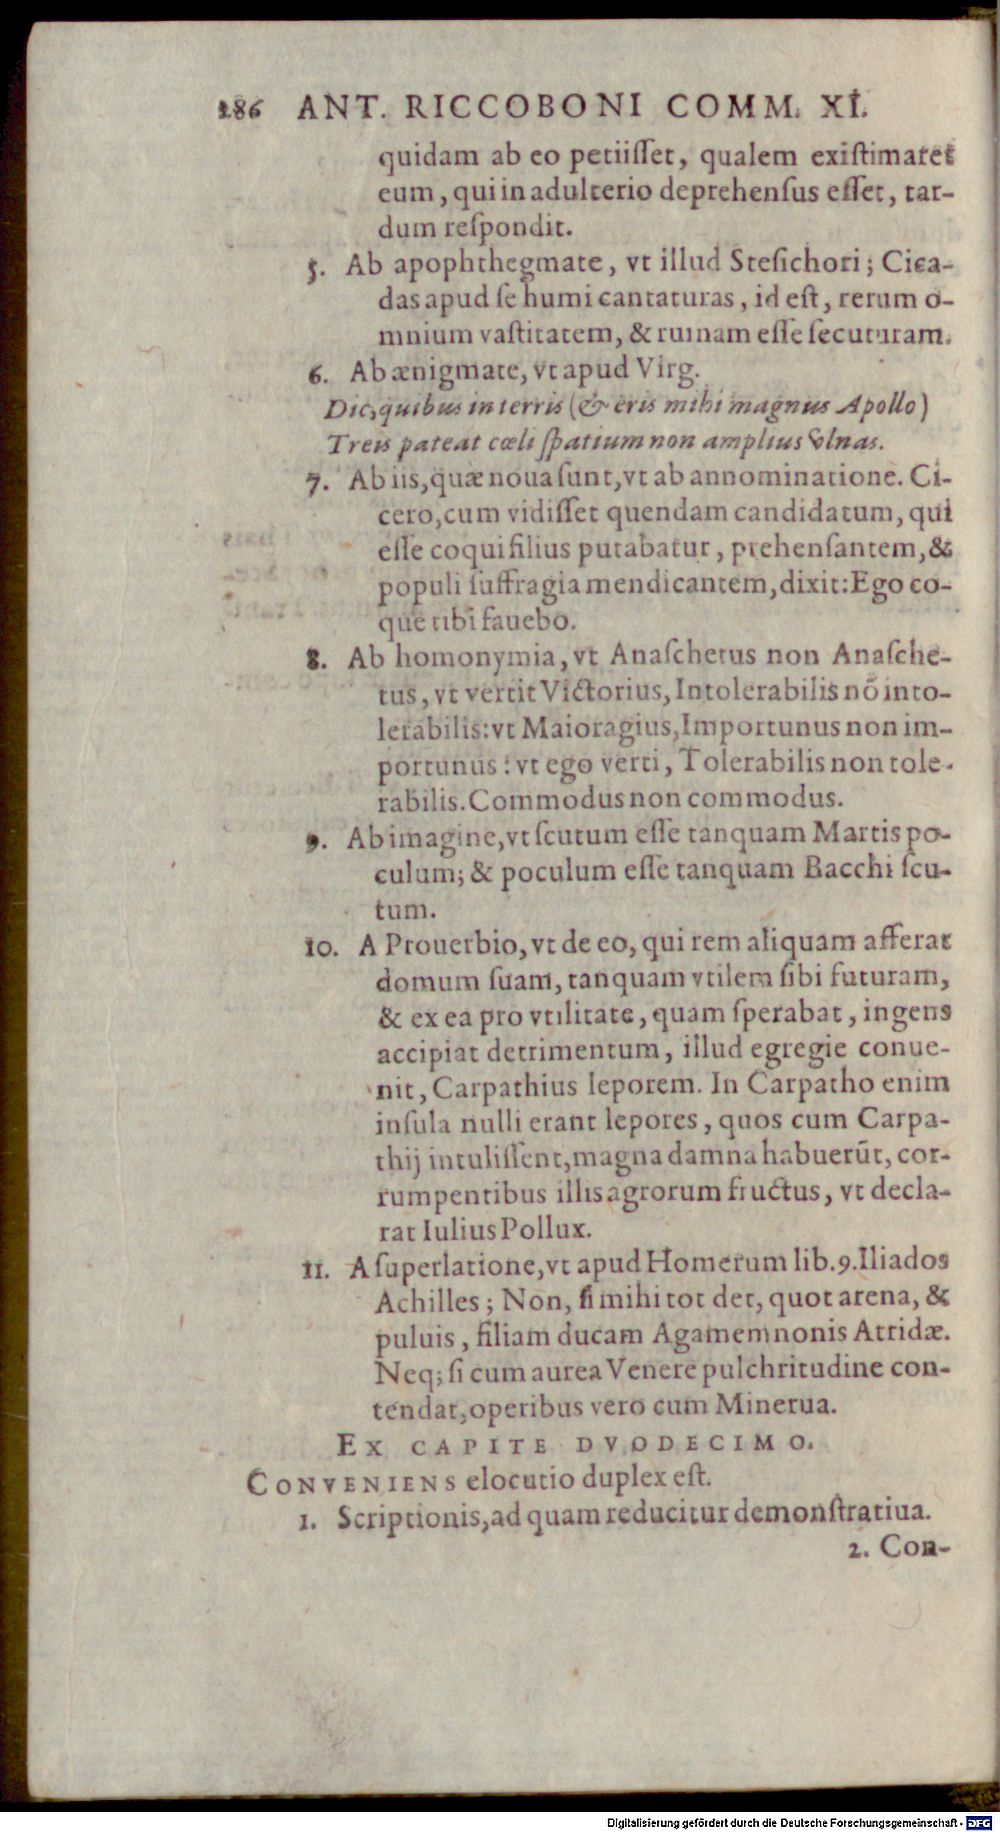 286 ANT. RICCOBONI COMM. XI.
quidam ab eo petiiſſet, qualem exiſtimaret
eum, qui in adulterio deprehenſus eſſet, tar-
dum reſpondit.
5. Ab apophthegmate, vt illud Steſichori; Cica-
das apud ſe humi cantaturas, id eſt, rerum o-
mnium vaſtitatem, & ruinam eſſe ſecuturam.
6. Ab ænigmate, vt apud Virg.
Dic, quibus in terris (& eris mihi magnus Apollo)
Treis pateat cœli ſpatium non amplius vlnas.
7. Ab iis, quæ noua ſunt, vt ab annominatione. Ci-
cero, cum vidiſſet quendam candidatum, qui
eſſe coqui filius putabatur, prehenſantem, &
populi ſuffragia mendicantem, dixit: Ego co-
que tibi fauebo.
8. Ab homonymia, vt Anaſchetus non Anaſche-
tus, vt vertit Victorius, Intolerabilis nō into-
lerabilis: vt Maioragius, Importunus non im-
portunus: vt ego verti, Tolerabilis non tole-
rabilis. Commodus non commodus.
9. Ab imagine, vt ſcutum eſſe tanquam Martis po-
culum; & poculum eſſe tanquam Bacchi ſcu-
tum.
10. A Prouerbio, vt de eo, qui rem aliquam afferat
domum ſuam, tanquam vtilem ſibi futuram,
& ex ea pro vtilitate, quam ſperabat, ingens
accipiat detrimentum, illud egregie conue-
nit, Carpathius leporem. In Carpatho enim
inſula nulli erant lepores, quos cum Carpa-
thij intuliſſent, magna damna habuerūt, cor-
rumpentibus illis agrorum fructus, vt decla-
rat Iulius Pollux.
11. A ſuperlatione, vt apud Homerum lib. 9. Iliados
Achilles; Non, ſi mihi tot det, quot arena, &
puluis, filiam ducam Agamemnonis Atridæ.
Neq; ſi cum aurea Venere pulchritudine con-
tendat, operibus vero cum Minerua.
EX CAPITE DVODECIMO.
CONVENIENS elocutio duplex eſt.
1. Scriptionis, ad quam reducitur demonſtratiua.
2. Con-
Digitalisierung gefördert durch die Deutsche Forschungsgemeinschaft - DFG